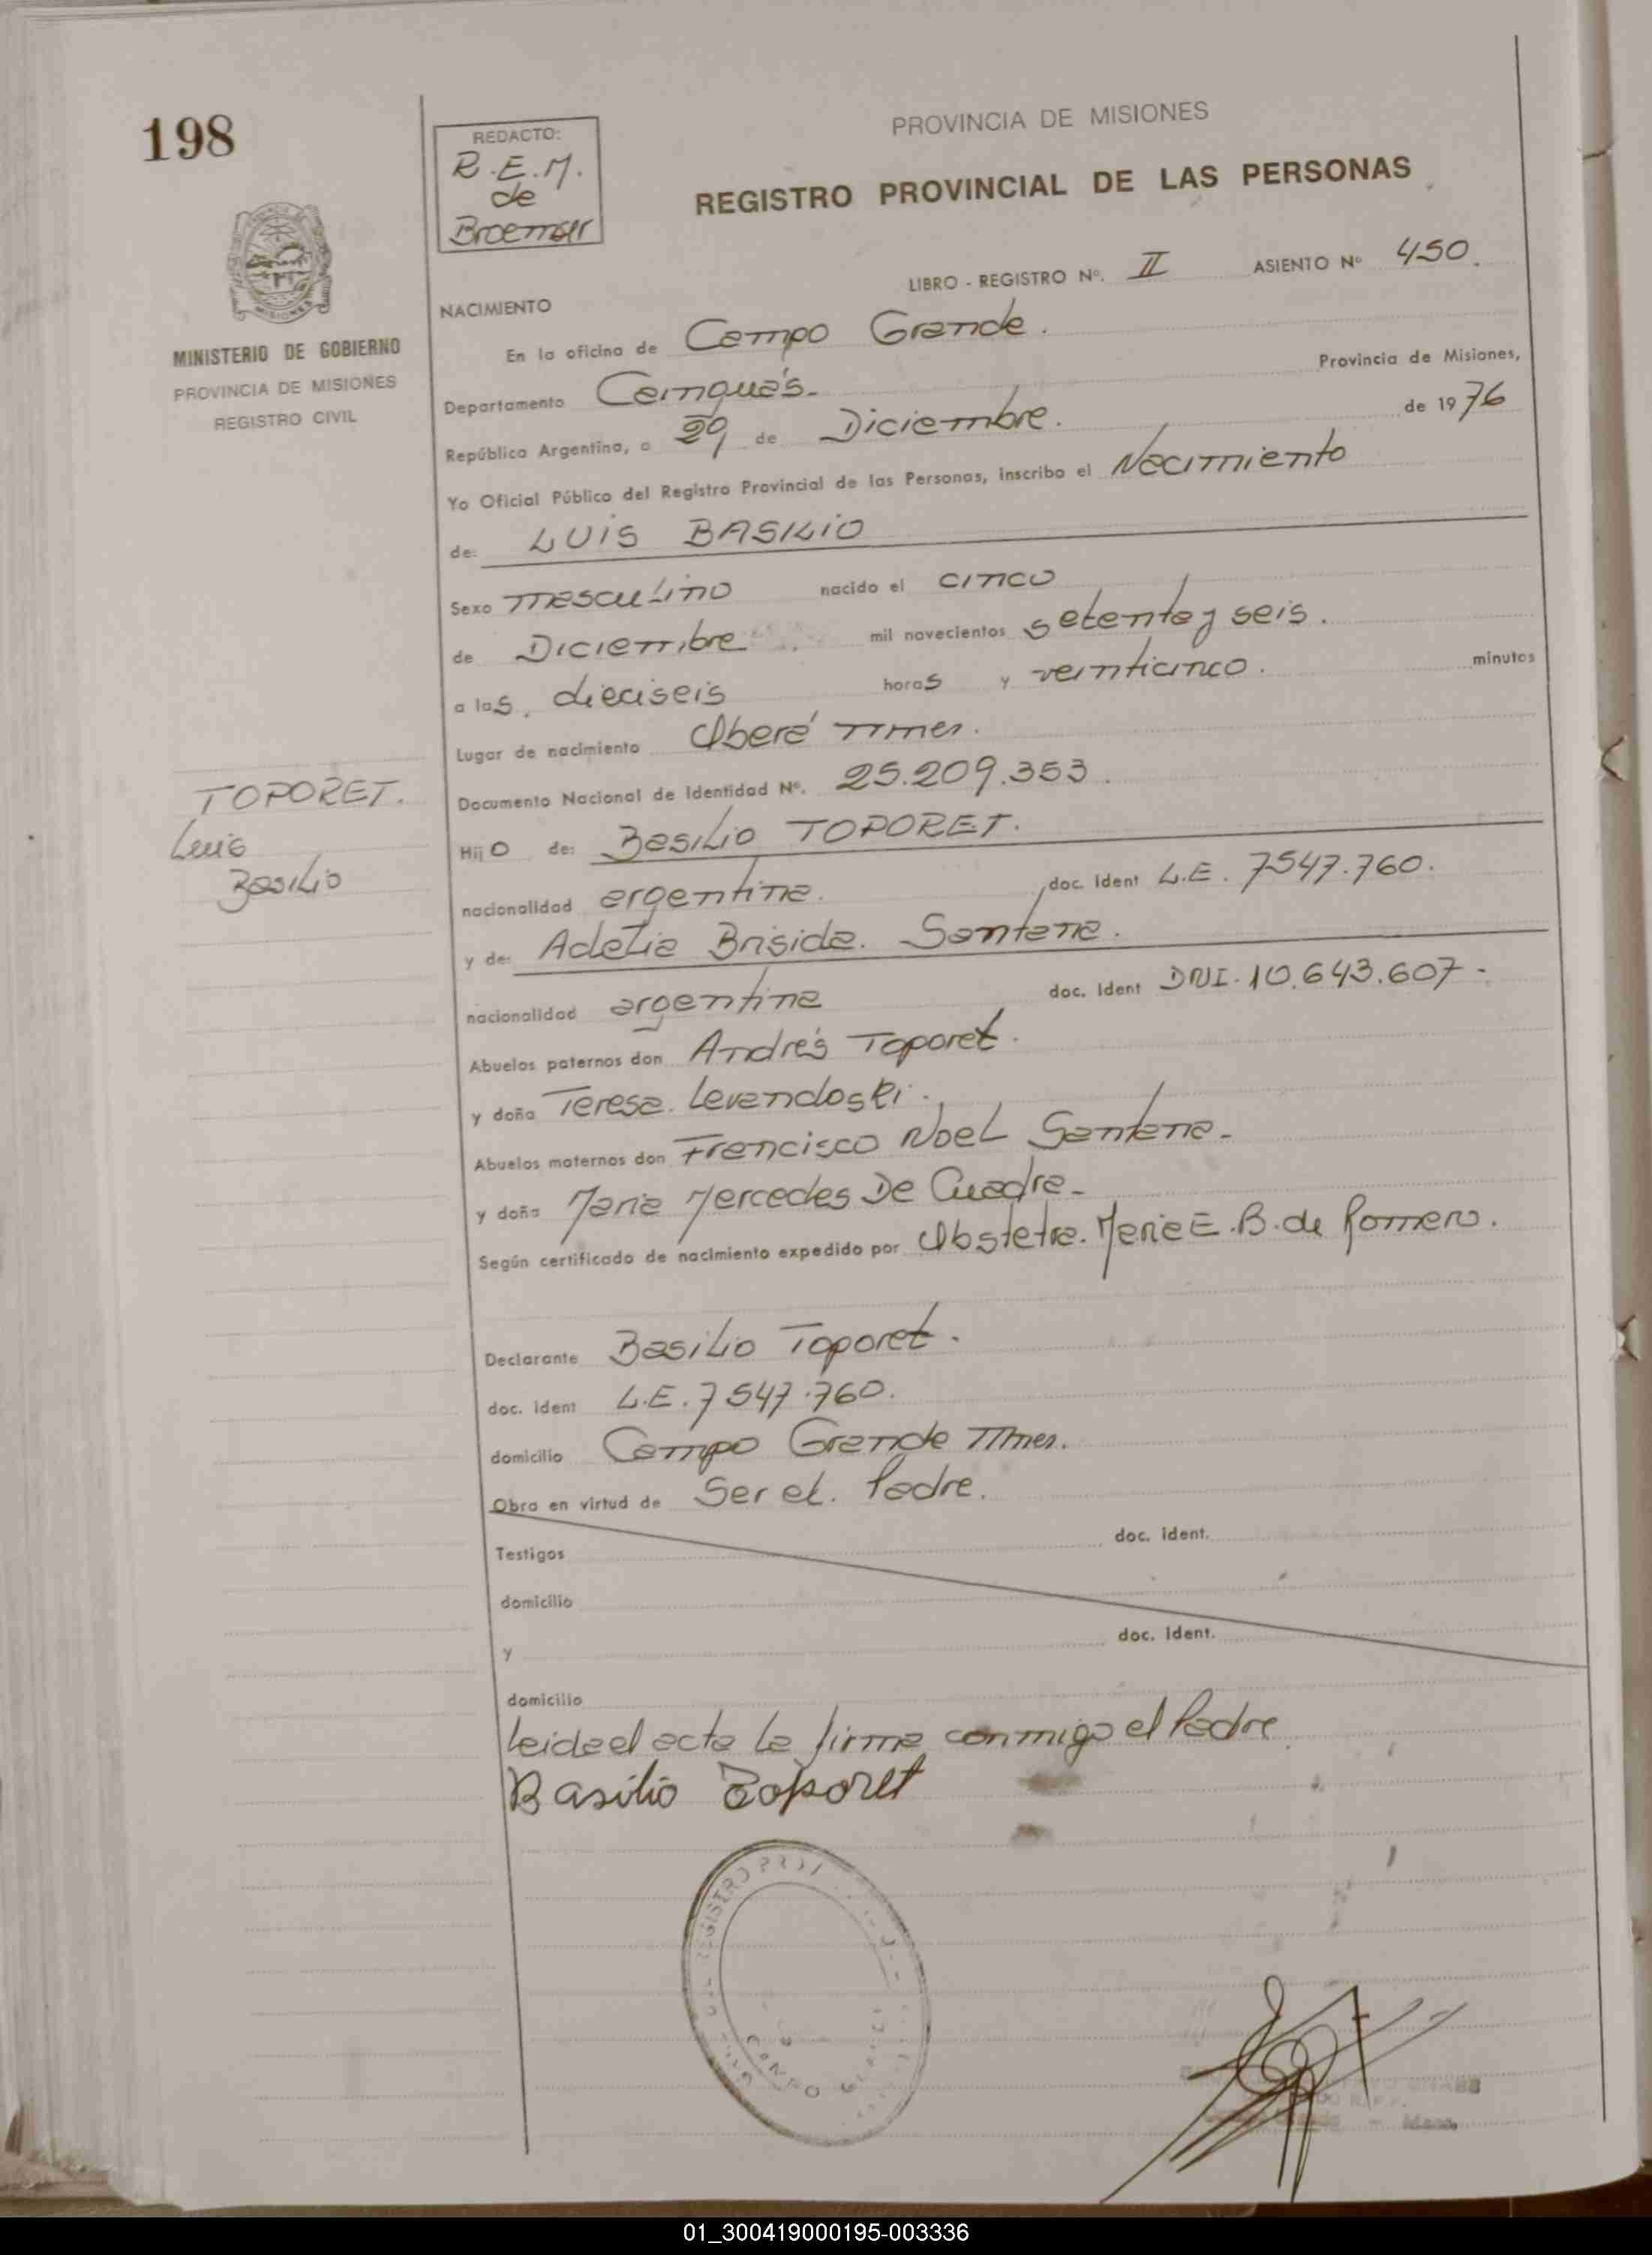 198
REDACTO:
R.E.M.
de
PROVINCIA DE MISIONES
REGISTRO PROVINCIAL DE LAS PERSONAS
MINISTERIO DE GOBIERNO
PROVINCIA DE MISIONES
REGISTRO CIVIL
MISIONES
LIBRO - REGISTRO Nº. II ASIENTO Nº 450.
NACIMIENTO
En la oficina de Campo Grande.
Departamento Cainguás. Provincia de Misiones,
República Argentina, a 29 de Diciembre. de 1976
Yo Oficial Público del Registro Provincial de las Personas, inscribo el Nacimiento
de: LUIS BASILIO
Sexo masculino nacido el cinco
de Diciembre mil novecientos setenta y seis.
a las. dieciseis horas y veinticinco. minutos
Lugar de nacimiento Oberá Mnes.
Documento Nacional de Identidad Nº. 25.209.353.
TOPORET.
Luis
Basilio
Hijo de: Basilio TOPORET.
nacionalidad argentina. doc. ident L.E. 7547.760.
y de: Adelia Brisida. Santana.
nacionalidad argentina doc. ident DNI. 10.643.607-
Abuelos paternos don Andrés Toporet.
y doña Teresa. Levandoski.
Abuelos maternos don Francisco Noel Santana-
y doña Maria Mercedes De Cuadra-
Según certificado de nacimiento expedido por Obstetra. Maria E.B. de Romero.
Declarante Basilio Toporet.
doc. ident L.E. 7547.760.
domicilio Campo Grande Mnes.
Obra en virtud de Ser el. Padre.
Testigos doc. ident.
domicilio
y doc. ident.
domicilio
Leida el acta la firma conmigo el Padre
Basilio Toporet
REGISTRO
CAMPO
01_300419000195-003336